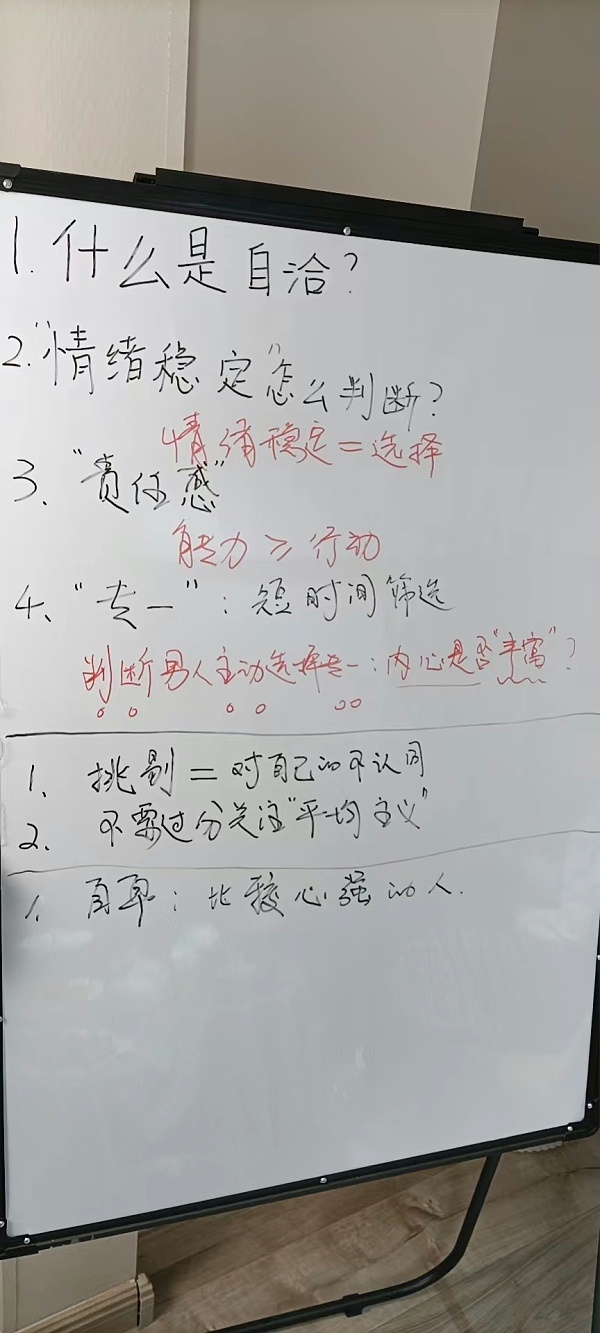 1. 什么是自洽?
2. "情绪稳定"怎么判断?
情绪稳定=选择
3、"责任感"
能力≥行动
4、"专一":短时间筛选
判断男人主动选择专一:内心是否"丰富"?
1、挑剔=对自己的不认同
2、不要过分关注"平均主义"
1、自卑:比较心强的人.